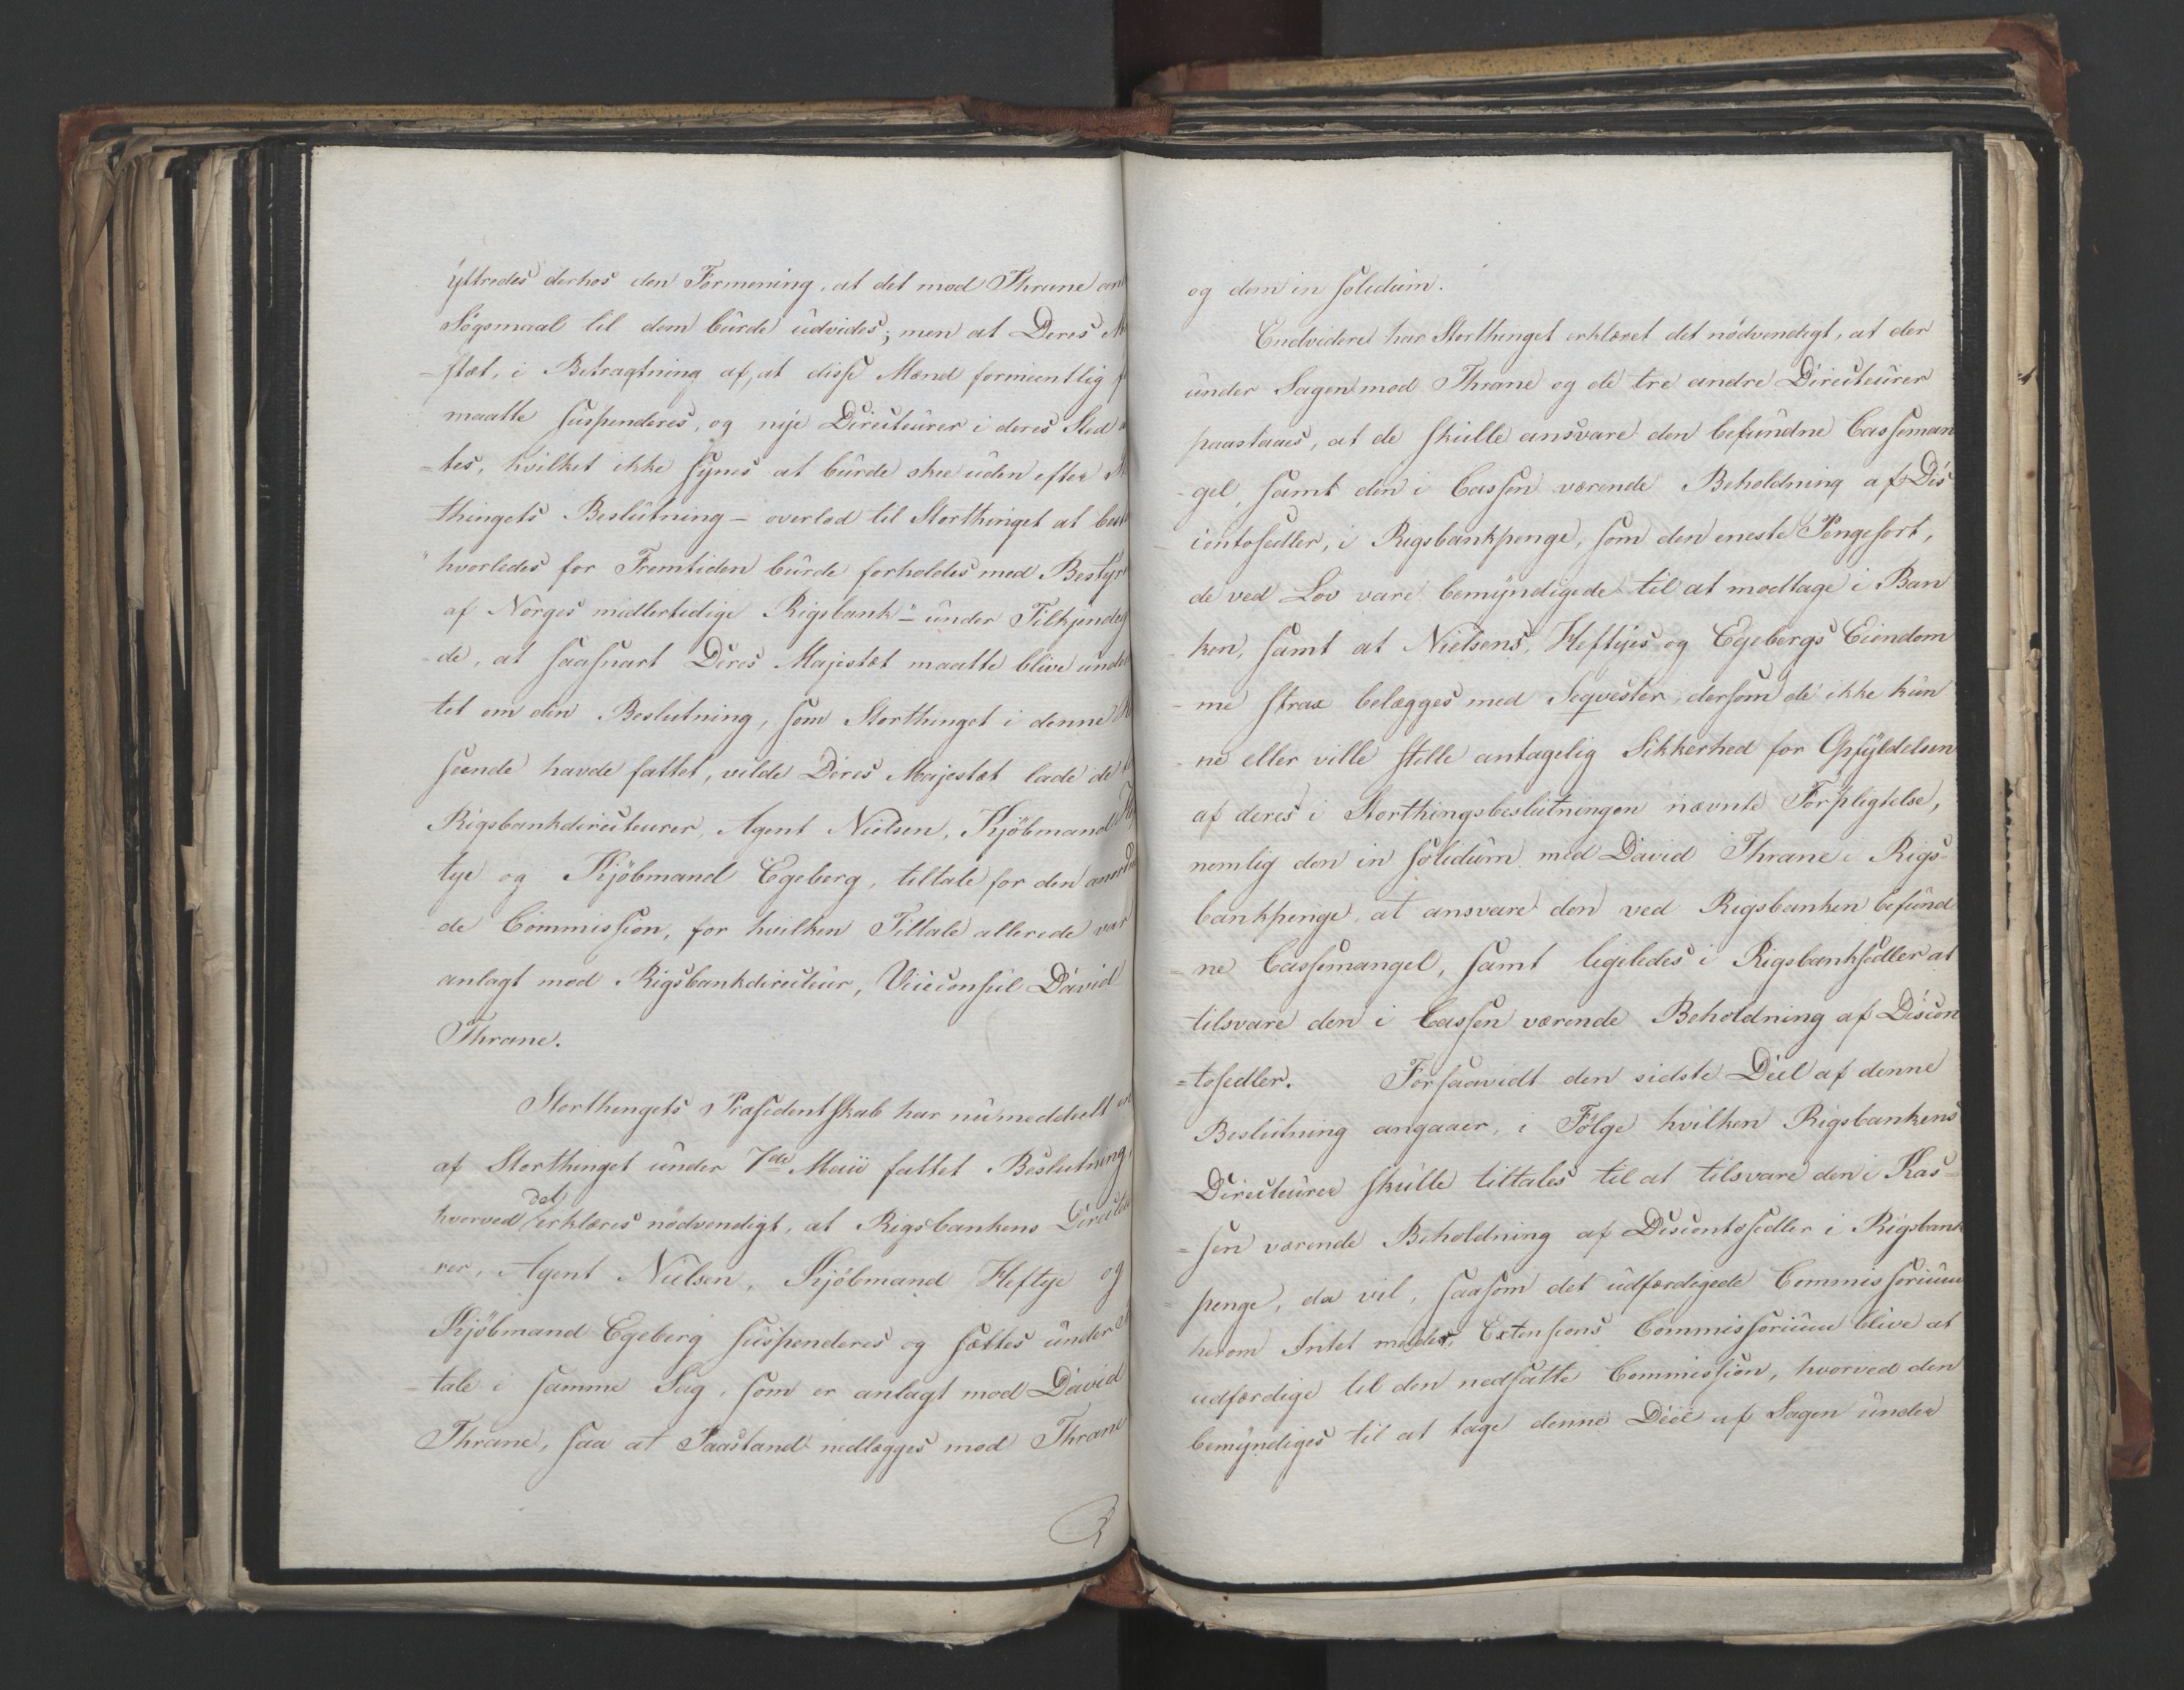 yttredes derhos den Formening, at det mod Thrane an
Søgsmaal til dem burde udvides; men at Deres M
-stæt, i Betragtning af, at disse Mænd formeentlig f
maatte suspenderes, og nye Directeurer i deres Sted
-tes, hvilket ikke synes at burde skee uden efter
thingets Beslutning - overlod til Storthinget at be
"hvorledes for Fremtiden burde forholdes med Bestyr
af Norges midlertidige Rigsbank" - under Tilkjendeg
-de, at saasnart Deres Majestæt maatte blive under
tet om den Beslutning, som Storthinget i denne H
seende havde fattet, vilde Deres Majestæt lade de
Rigsbankdirecteurer, Agent Nielsen, Kjöbmand Hef
tye og Kjöbmand Egeberg, tiltale for den anord
de Commission, for hvilken Tiltale allerede var
anlagt mod Rigsbankdirecteur, Viceconsul David
Thrane.
Storthingets Præsidentskab har nu meddeelt
af Storthinget under 7de Maii fattet Beslutning,
hvorved det erklæres nödvendigt, at Rigsbankens Directeu
rer, Agent Nielsen, Kjöbmand Heftye og
Kjöbmand Egeberg suspenderes og sættes under
tale i samme Sag, som er anlagt mod David
Thrane, saa at Paastand nedlægges mod Thrane
og dem in solidum.
Endvidere har Storthinget erklæret det nödvendigt, at der
under Sagen mod Thrane og de tre andre Directeurer
paastaaes, at de skulle ansvare den befundne Casseman
-gel, samt den i Cassen værende Beholdning af Dis
contosedler, i Rigsbankpenge, som den eneste Pengesort,
de ved Lov vare bemyndigede til at modtage i Ban
ken, samt at Nielsens, Heftyes og Egebergs Eiendom
-me strax belægges med Seqvester, dersom de ikke kun
-ne eller ville stille antagelig Sikkerhed for Opfyldelsen
af deres i Storthingsbeslutningen nævnte Forpligtelse,
nemlig den in solidum med David Thrane i Rigs-
bankpenge, at ansvare den ved Rigsbanken befund
-ne Cassemangel, samt ligeledes i Rigsbanksedler at
tilsvare den i Cassen værende Beholdning af Discon
=tosedler. Forsaavidt den sidste Deel af denne
Beslutning angaaer, i Følge hvilken Rigsbankens
Directeurer skulle tiltales til at tilsvare den i Kas=
=sen værende Beholdning af Discontosedler i Rigsbank
penge, da vil, saasom det udfærdigede Commissorium
herom Intet melder, Extensions Commissorium blive at
udfærdige til den nedsatte Commission, hvorved den
bemyndiges til at tage denne Deel af Sagen under